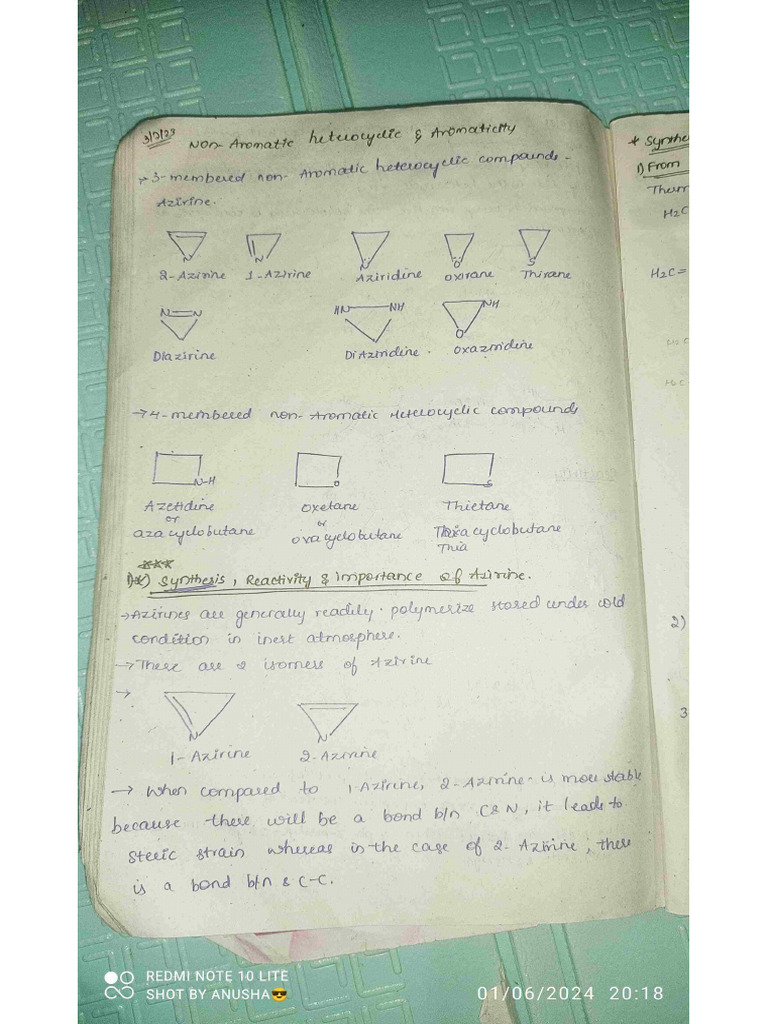 3/2/23
Non-Aromatic heterocyclic & Aromaticity
→ 3-membered non-Aromatic heterocyclic compounds-
Azirine.
N N N O S
2-Azirine 1-Azirine Aziridine oxirane Thirane
N N HN NH NH
O
Diazirine DiAziridine. Oxaziridine
→ 4-membered non-Aromatic Heterocyclic compounds
N-H O S
Azetidine Oxetane Thietane
or or
aza cyclobutane oxa cyclobutane cyclobutane
Thia
***
Synthesis, Reactivity & importance of Azirine.
→ Azirines are generally readily. polymerize stored under cold
condition in inert atmosphere.
→ There are 2 isomers of Azirine
→
N N
1-Azirine 2-Azirine
→ When compared to 1-Azirine, 2-Azirine is more stable
because there will be a bond b/n C&N, it leads to
steric strain whereas in the case of 2-Azirine, there
is a bond b/n & C-C.
* Synthe
1) From
Therm
H2C
H2C=
2)
3
REDMI NOTE 10 LITE
SHOT BY ANUSHA😎
01/06/2024 20:18